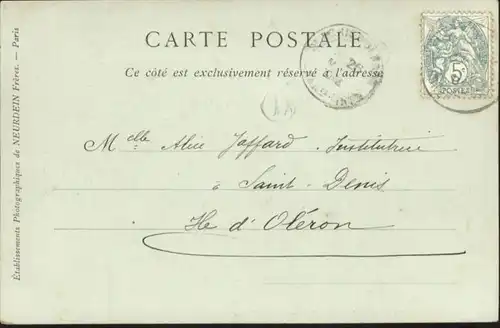 CARTE POSTALE
Ce côté est exclusivement réservé à l'adresse
5
POSTES
Mclle Alice Jaffard Institutrice
à Saint-Denis
Ile d'Oléron
Établissements Photographiques de NEURDEIN Frères. — Paris